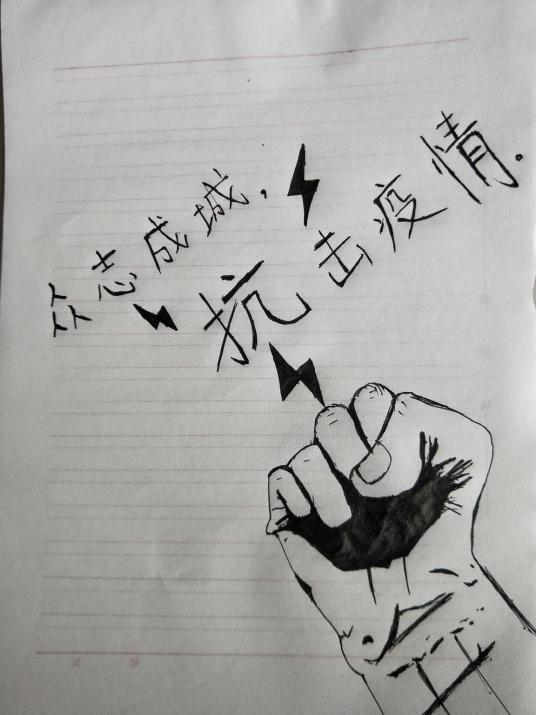 众志成城，
抗击疫情.